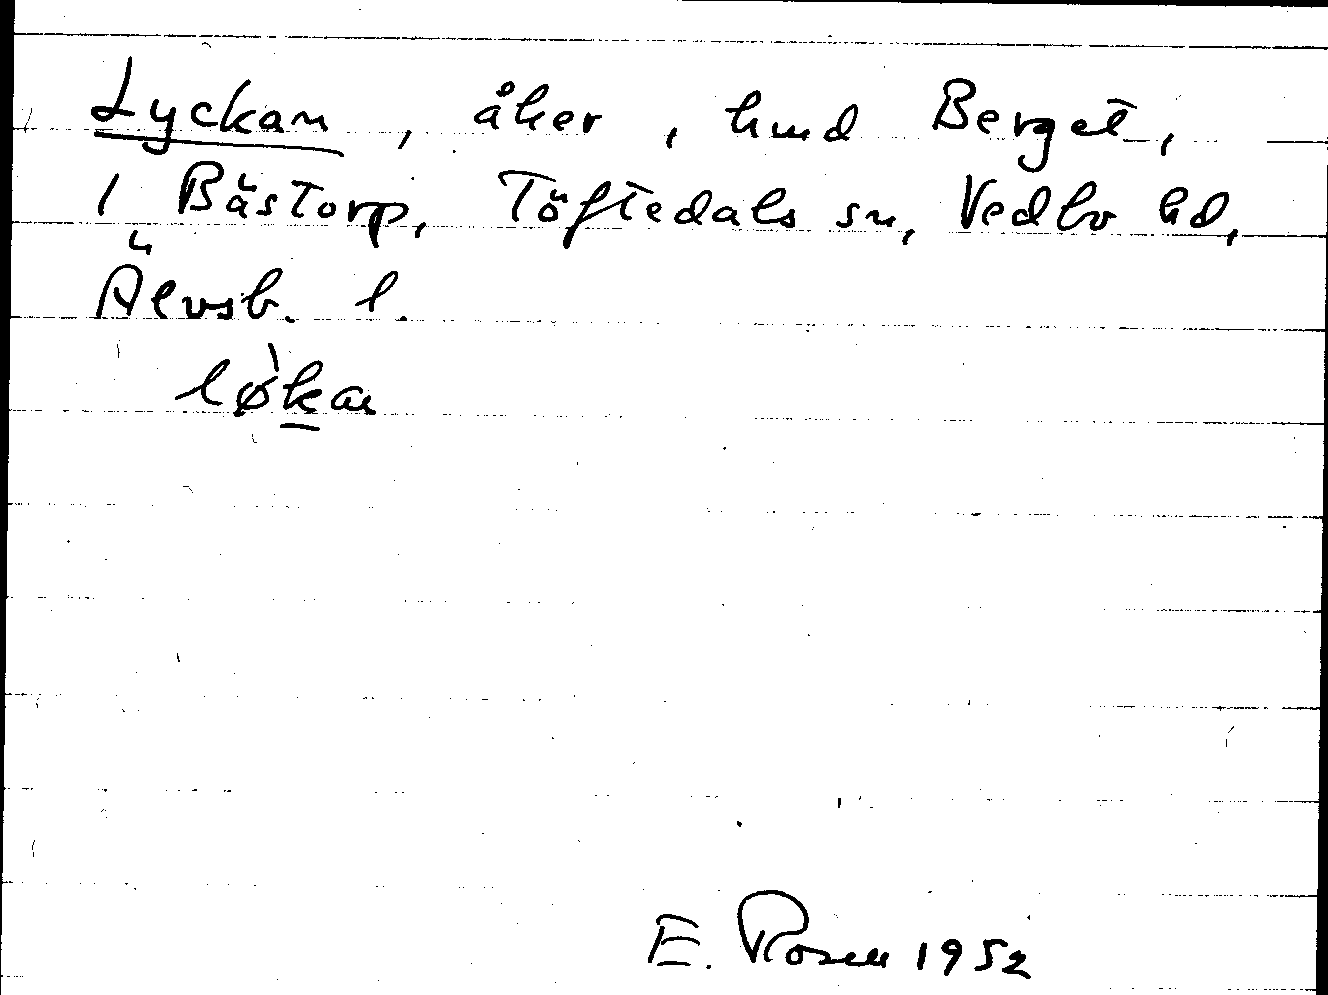 Lyckan, åker, hmd Berget,
I Båstorp, Töftedals sn, Vedbo hd,
Älvsb. l.
lø̀kan
E. Rosen 1952